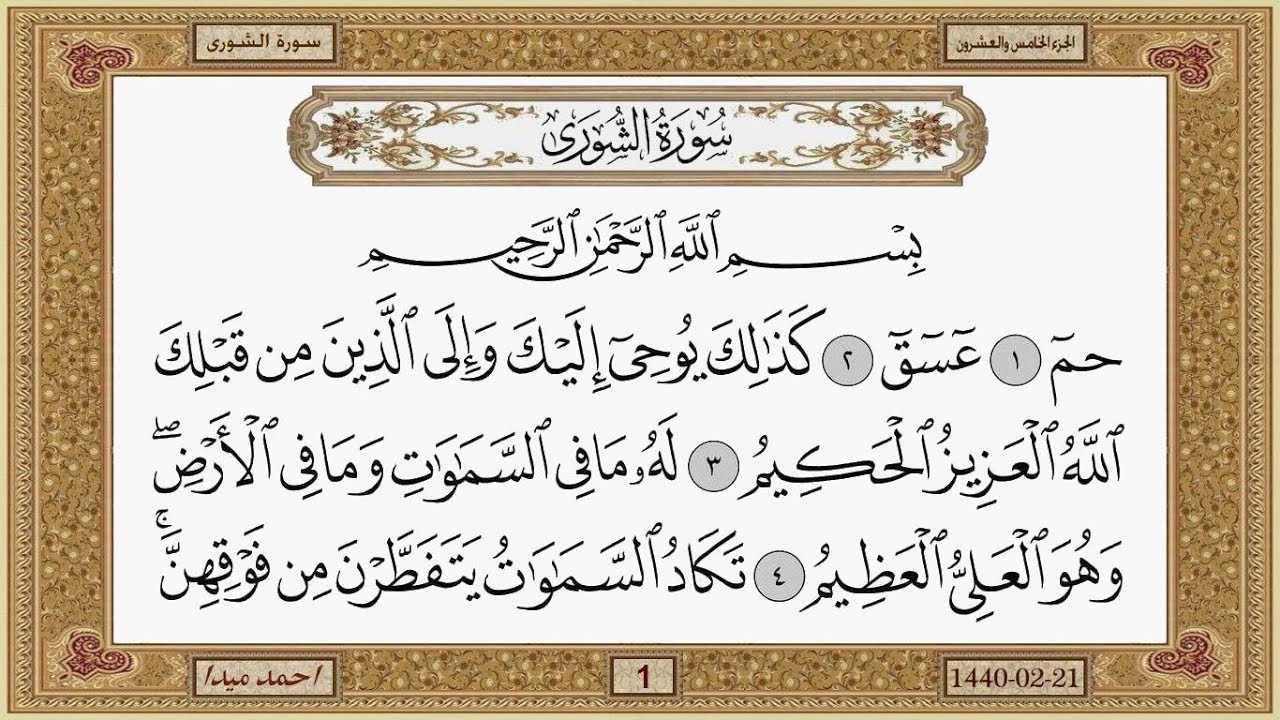 الجزء الخامس والعشرون
سورة الشورى
سُورَةُ الشُّورَىٰ
بِسْمِ ٱللَّهِ ٱلرَّحْمَٰنِ ٱلرَّحِيمِ
حمٓ ١ عٓسٓقٓ ٢ كَذَٰلِكَ يُوحِىٓ إِلَيْكَ وَإِلَى ٱلَّذِينَ مِن قَبْلِكَ
ٱللَّهُ ٱلْعَزِيزُ ٱلْحَكِيمُ ٣ لَهُۥ مَا فِى ٱلسَّمَٰوَٰتِ وَمَا فِى ٱلْأَرْضِ ۖ
وَهُوَ ٱلْعَلِىُّ ٱلْعَظِيمُ ٤ تَكَادُ ٱلسَّمَٰوَٰتُ يَتَفَطَّرْنَ مِن فَوْقِهِنَّ ۚ
1440-02-21
1
احمد ميدا